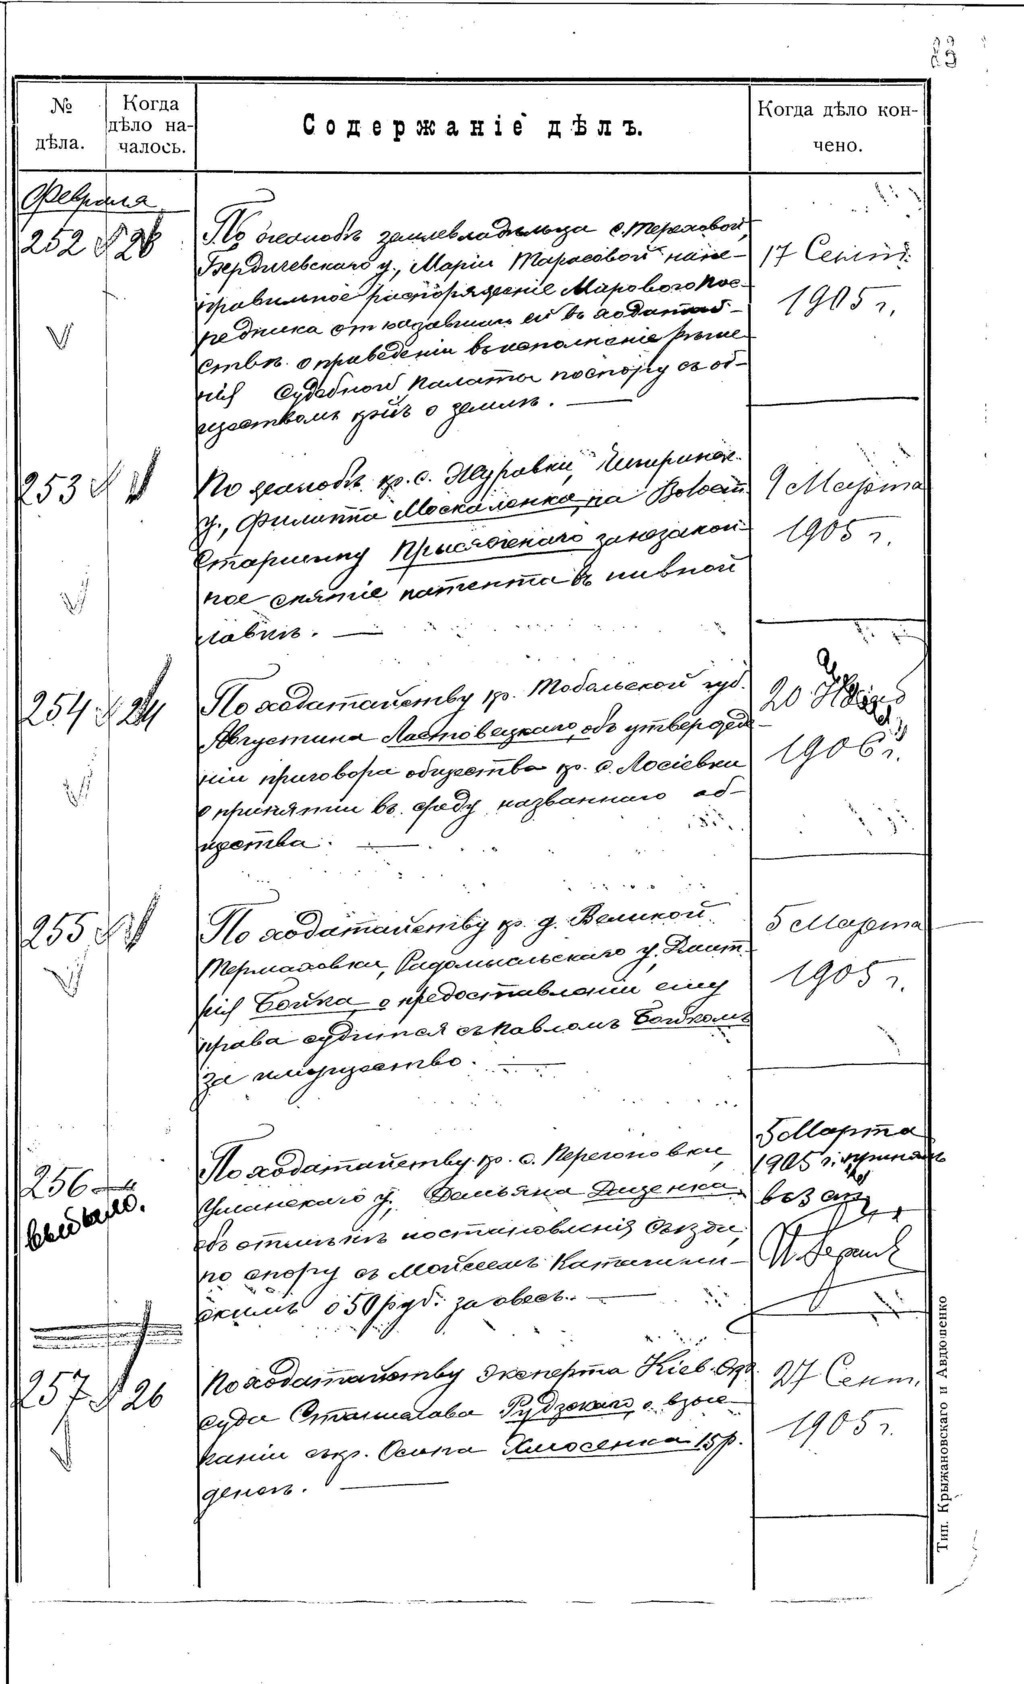 23
№ дѣла.
Когда дѣло началось.
Содержаніе дѣлъ.
Когда дѣло кончено.
Февраля
252
По жалобѣ землевладѣльца с. Тереховой,
Бердичевскаго у., Маріи Тарасовой на не-
правильное распоряженіе Мирового Пос-
редника отказавшаго ей въ ходатай-
ствѣ о приведеніи въ исполненіе рѣше-
нія Судебной Палаты по спору съ об-
ществомъ кр-нъ о землѣ. —
17 Сент.
1905 г.
253
По жалобѣ кр. с. Журавки, Чигиринск.
у., Филиппа Москаленко, на Волост.
Старшину Присяжнаго за незакон-
ное снятіе патента въ пивной
лавкѣ. —
9 Марта
1905 г.
254 24
По ходатайству кр. Тобольской губ.
Августина Ластовецкаго, объ утвержде-
ніи приговора общества кр. с. Лосіевки
о принятіи въ среду названнаго об-
щества. —
20
1906 г.
255
По ходатайству кр. д. Великой
Термаховки, Радомысльскаго у., Дмит-
рія Бойка, о предоставленіи ему
права судится съ Павломъ Бойкомъ
за имущество. —
5 Марта
1905 г.
256 —
выбыло.
По ходатайству кр. с. Перегоновки,
Уманскаго у., Демьяна Диденка,
объ отмѣнѣ постановленія съѣзда,
по спору съ Мойсеемъ
скимъ о 50 руб. за овесъ. —
5 Марта
1905 г.
257 26
По ходатайству эксперта Кіев. Окр.
суда Станислава Рудзскаго, о взыс-
каніи съ кр. Осипа Хмосенка 15 р.
денегъ. —
27 Сент.
1905 г.
Тип. Крыжановскаго и Авдюшенко